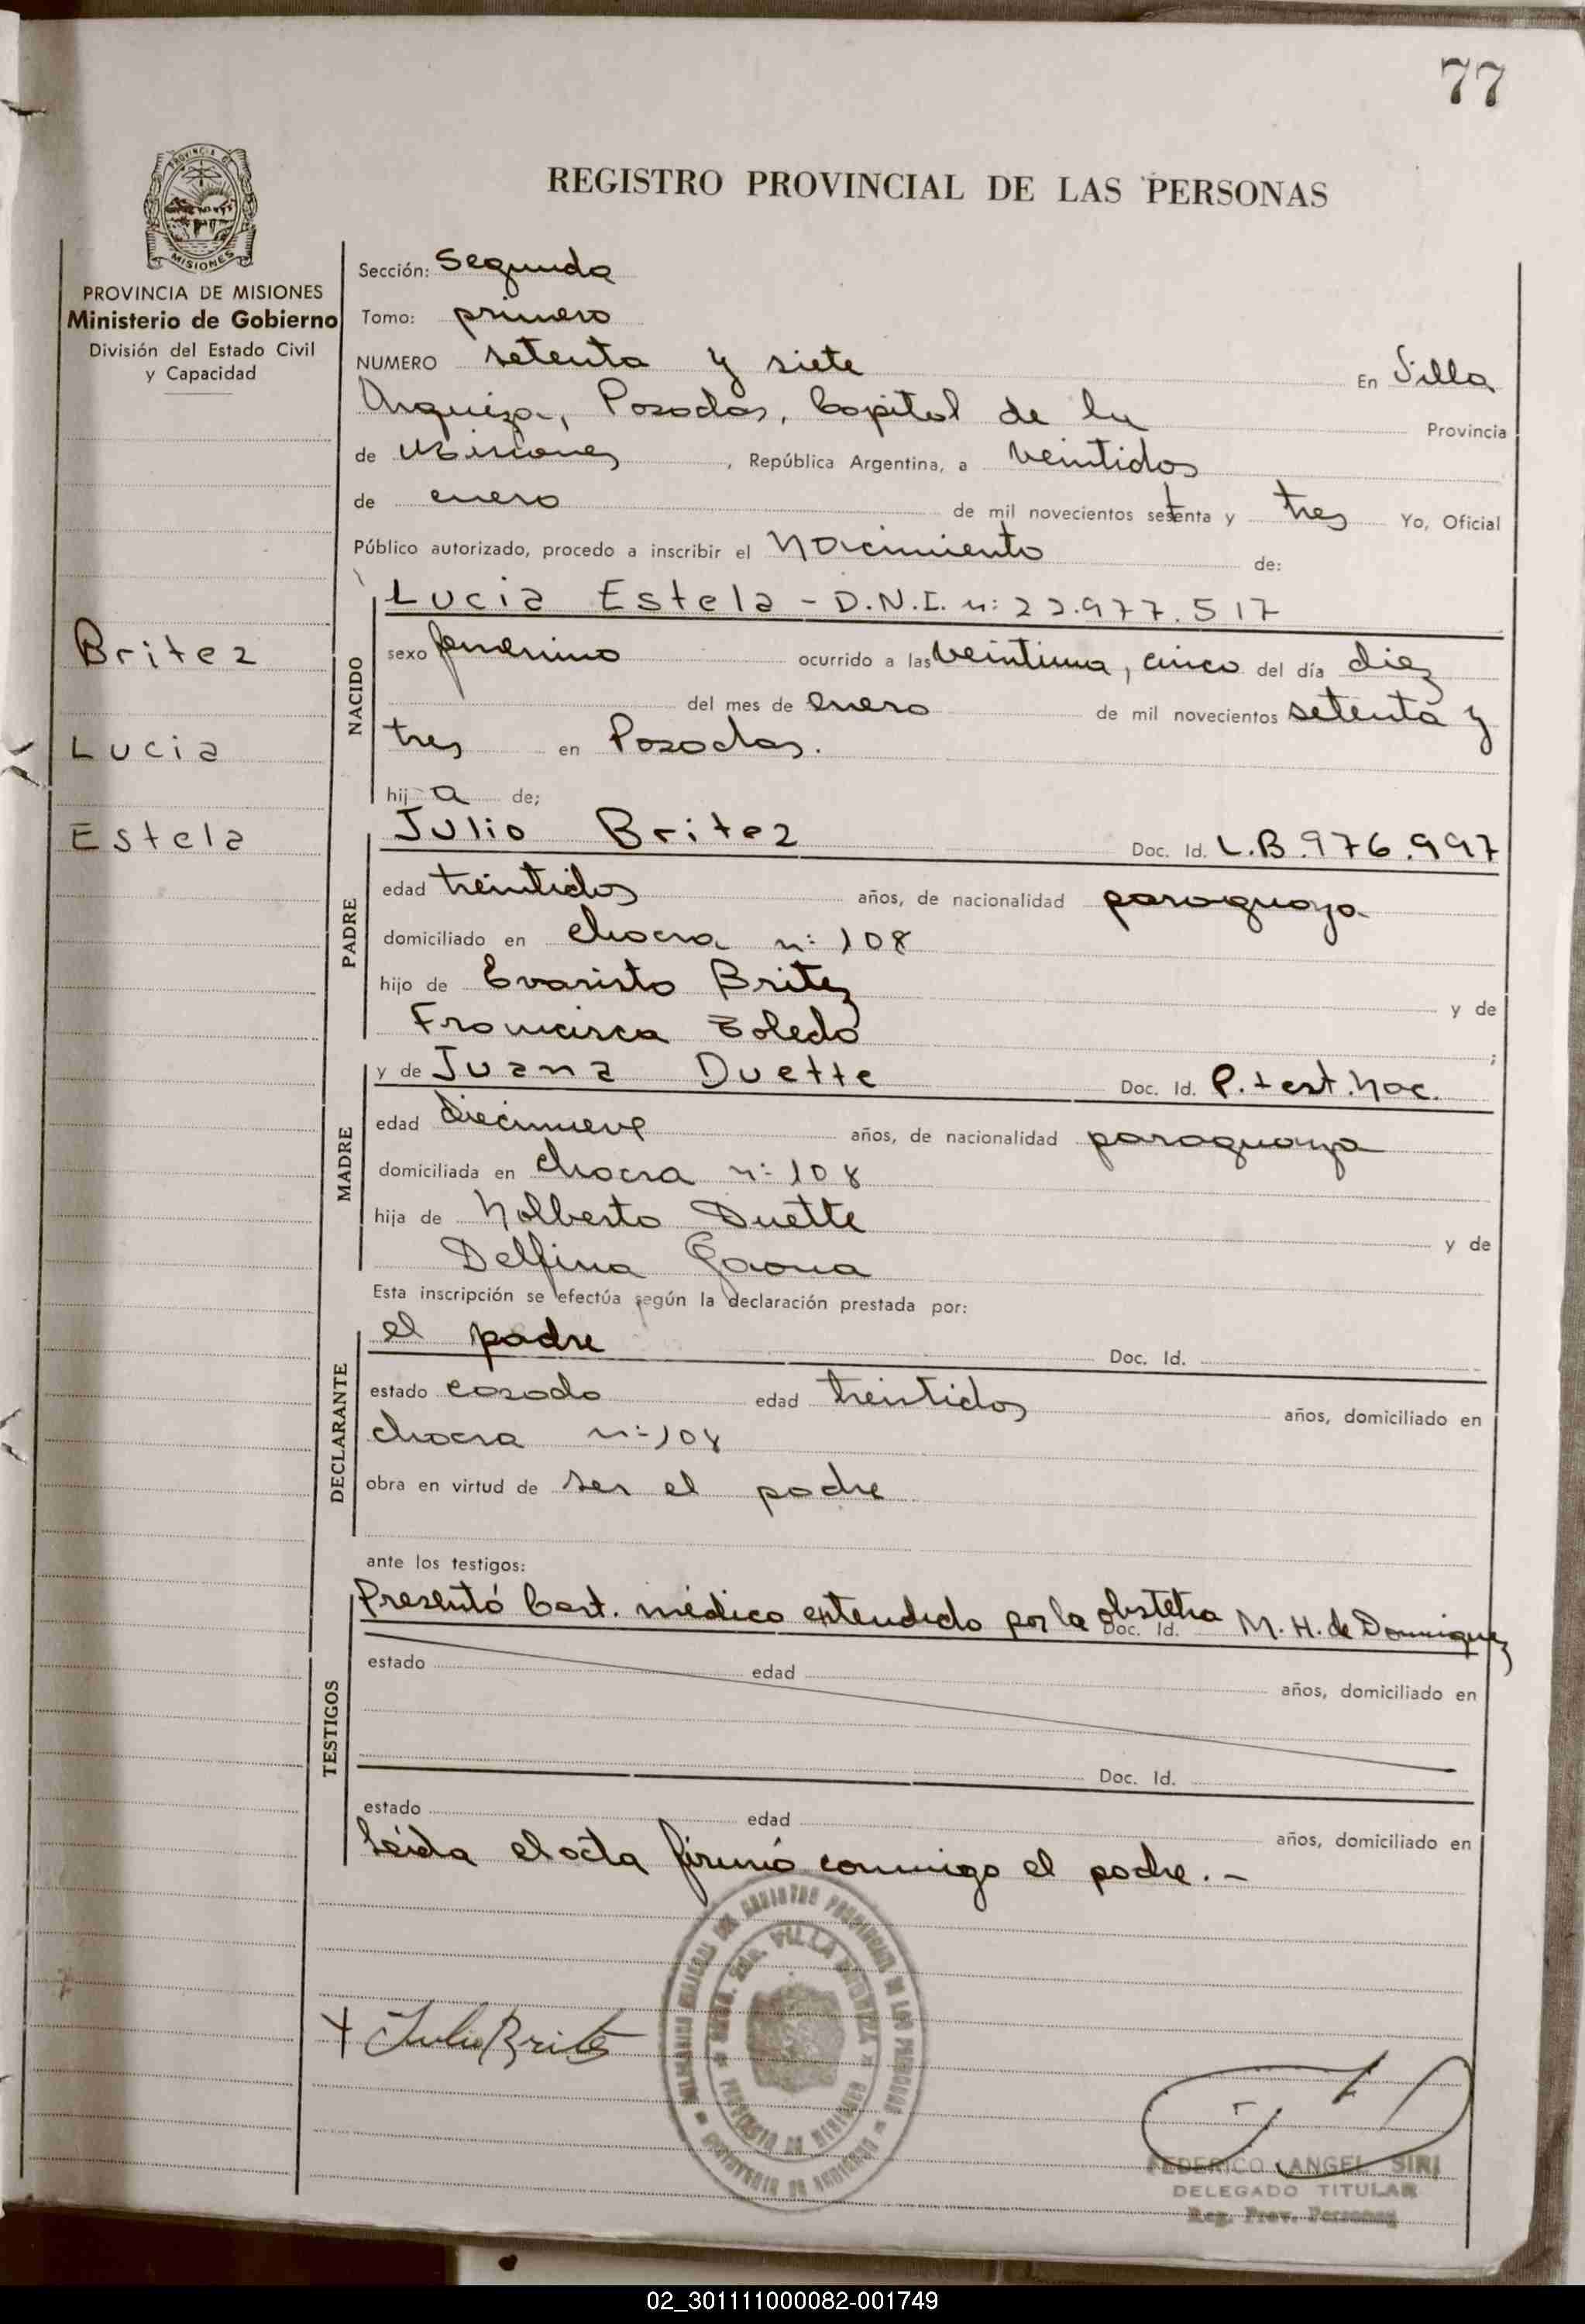 77
REGISTRO PROVINCIAL DE LAS PERSONAS
PROVINCIA DE
MISIONES
PROVINCIA DE MISIONES
Ministerio de Gobierno
División del Estado Civil
y Capacidad
Britez
Lucia
Estela
Sección: Segunda
Tomo: primero
NUMERO setenta y siete En Villa
Urquiza, Posadas, Capital de la Provincia
de Misiones, República Argentina, a veintidos
de enero de mil novecientos setenta y tres Yo, Oficial
Público autorizado, procedo a inscribir el Nacimiento de:
NACIDO
Lucia Estela - D.N.I. n: 22.977.517
sexo femenino ocurrido a las veintiuna, cinco del día diez
del mes de enero de mil novecientos setenta y
tres en Posadas.
hija de;
PADRE
Julio Britez Doc. Id. L.B.976.997
edad treintidos años, de nacionalidad paraguaya
domiciliado en chacra n: 108
hijo de Evaristo Britez y de
Francisca Toledo ;
MADRE
y de Juana Duette Doc. Id. P. test. nac.
edad diecinueve años, de nacionalidad paraguaya
domiciliada en chacra n: 108
hija de Nolberto Duette y de
Delfina Gaona
Esta inscripción se efectúa según la declaración prestada por:
DECLARANTE
el padre Doc. Id.
estado casado edad treintidos años, domiciliado en
chacra n: 108
obra en virtud de ser el padre
ante los testigos:
TESTIGOS
Presentó Cert. médico extendido por la obstetra Doc. Id. M. H. de Dominguez
estado edad años, domiciliado en
Doc. Id.
estado edad años, domiciliado en
Leída el acta firmó conmigo el padre. -
Julio Britez
VILLA URQUIZA
PROVINCIA DE MISIONES
FEDERICO ANGEL SIRI
DELEGADO TITULAR
Reg. Prov. Personas
02_301111000082-001749